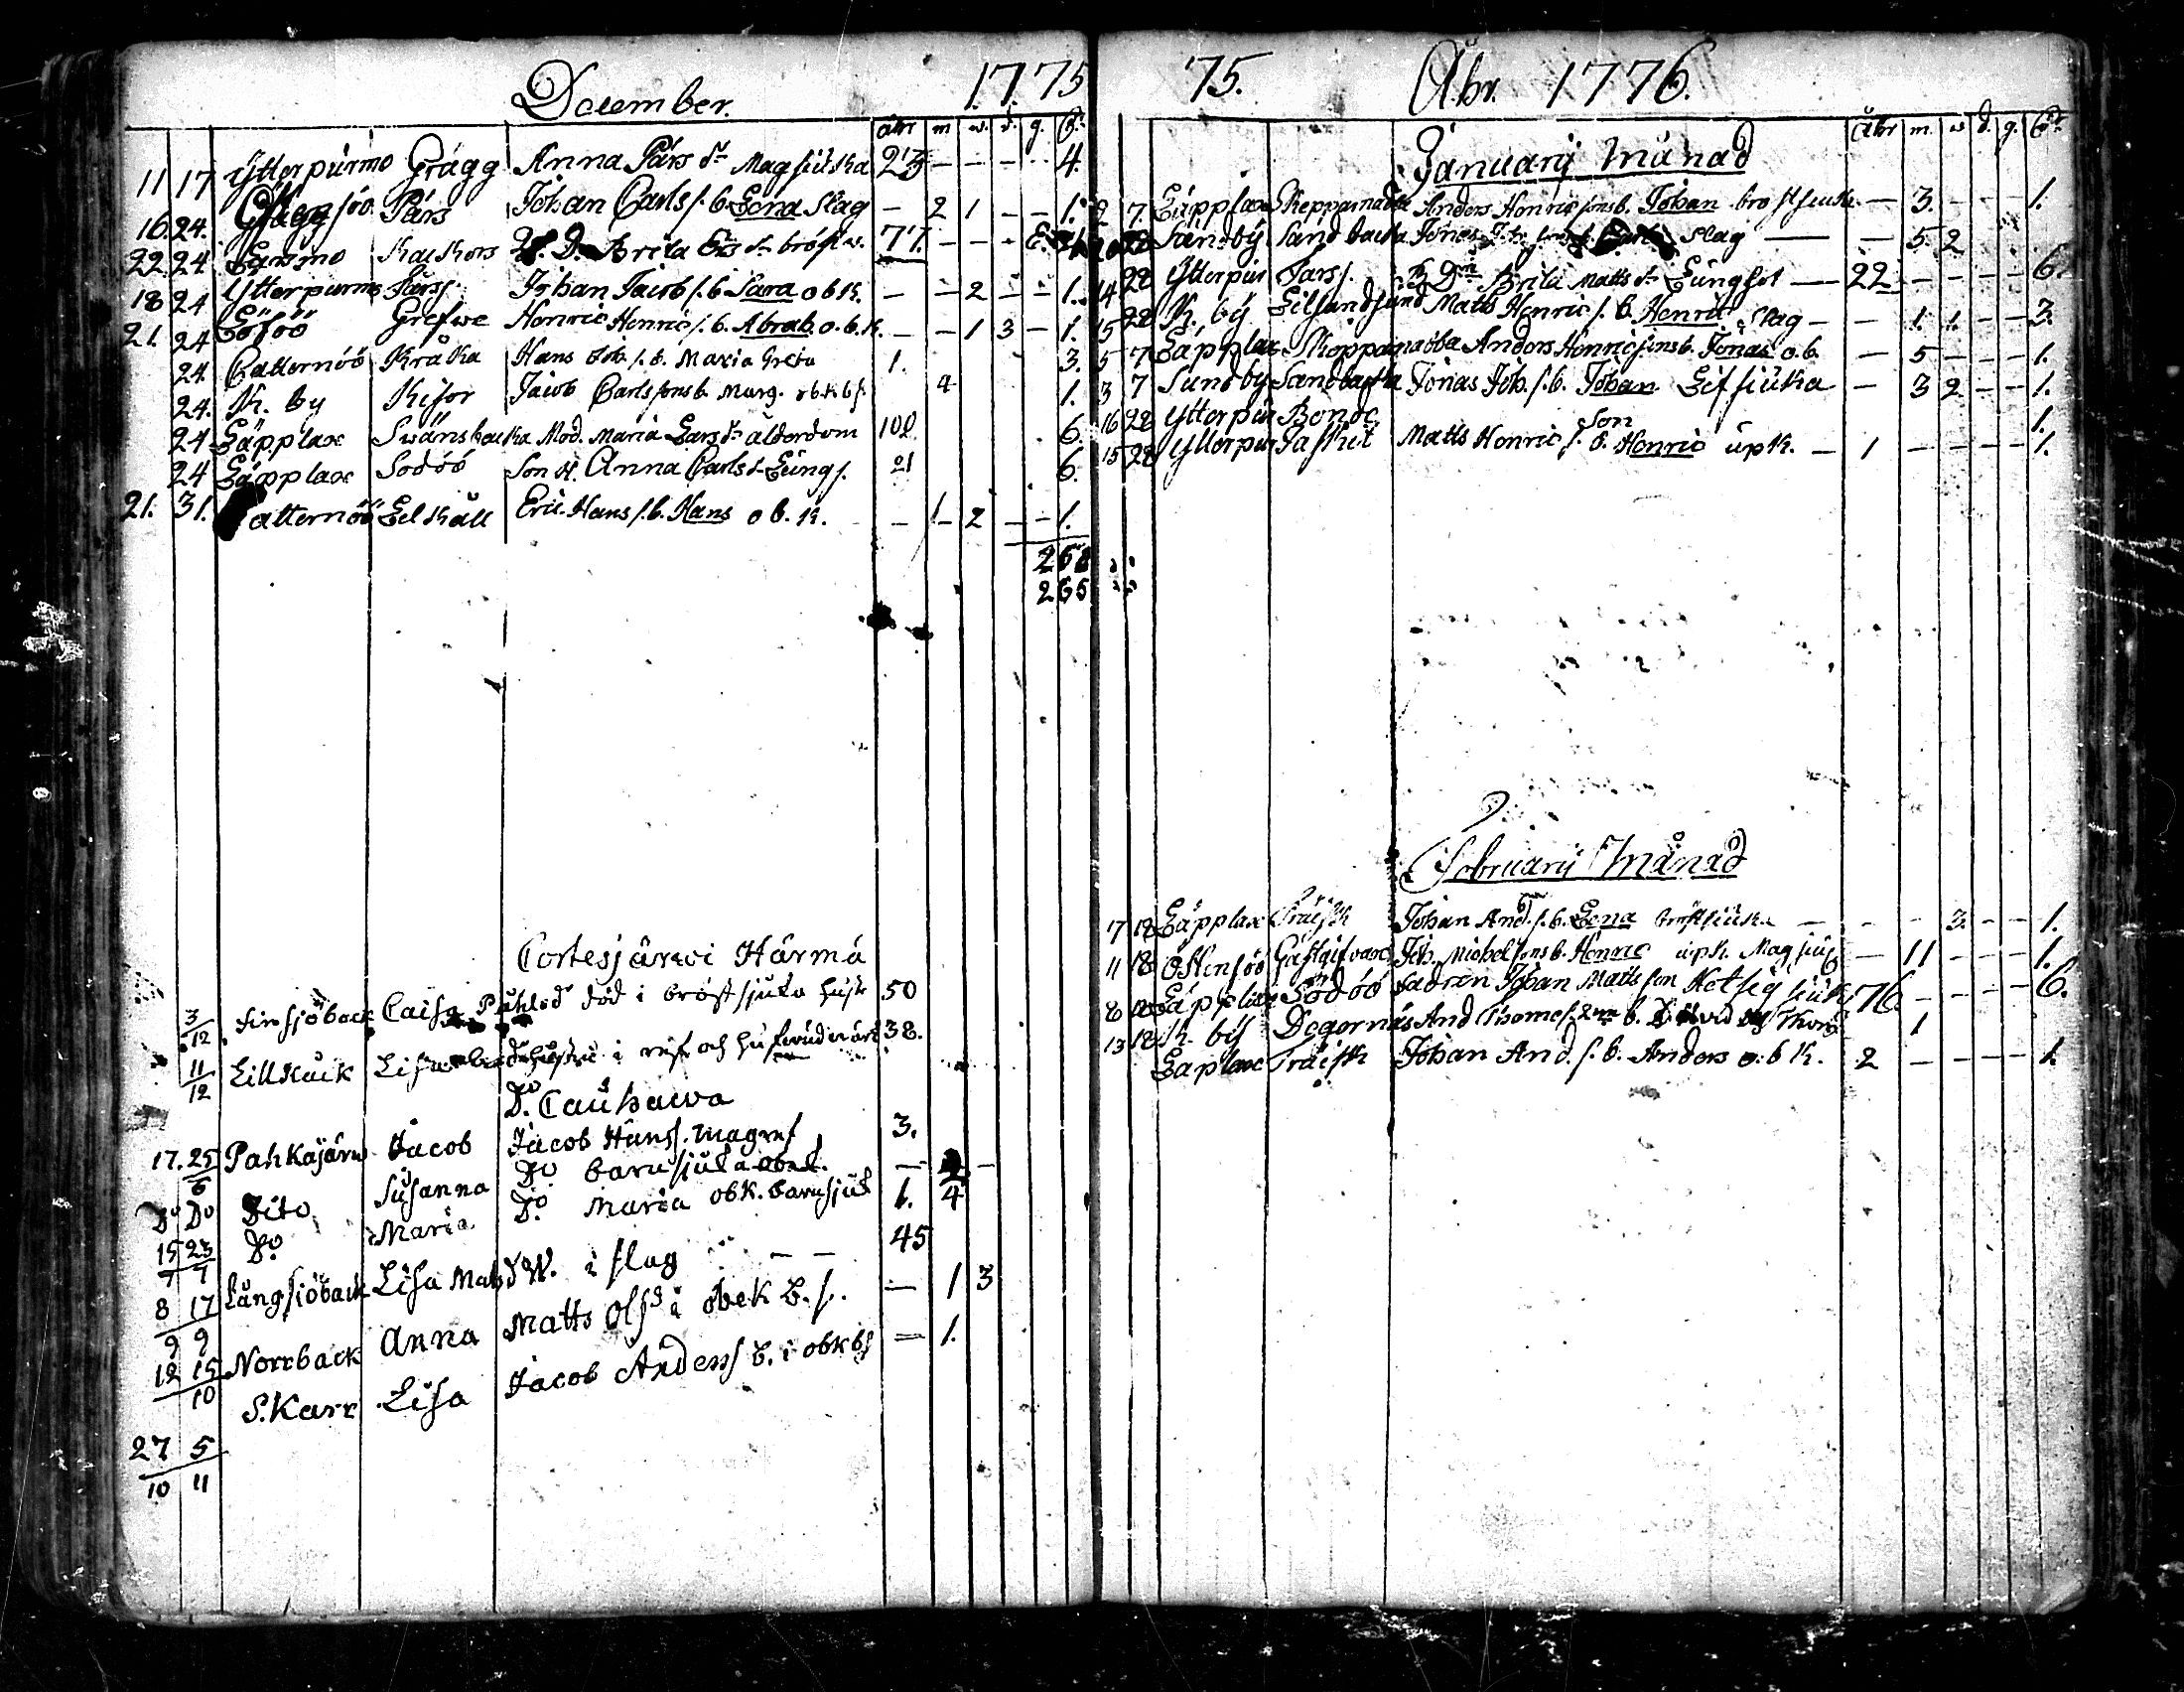 December. 1775
åhr m w. d. g. Cl.
11 17 Ytterpurmo Grägg Anna Pärs dr Magsiuka 23 - - - - 4.
16. 24. siö Pärs Johan Carls s. b. Lena Slag - 2 1 - - 1.
22 24. Larsmo Kackors Brita Ers dr bröst w. 77. - - -
18 24 Ytterpurmo Larss. Johan Jacob s. b. Sara o b k. - - 2 - - 1.
21. 24 Lösöö Grefwe Henric Henric s. b. Abrah. o. b. k. - - 1 3 - 1.
24. Catternöö Kråka Hans Joh. s. b. Maria Greta 1. 3.
24. K. by Kisor Jacob Carlssons b. Marg. ob. k. bs. 4 1.
24 Läpplax Swänsbacka Mod. Maria Lars dr ålderdom 102 6.
24 Läpplax Sodöö Son H. Anna Carls dr Lungs. 21 6.
21. 31. atternöö Eelkäll Eric Hans s. b. Hans o b. k. - 1 - 2 - - 1.
268
265
Cortesjärwi Härmä
3/12 Finsjöback Caisa död i bröstsjuka hustr 50
11/12 Lillkuik Lisa i röst och hufwudwärk 38.
Do. Cauhawa
17. 25/6 Pahkajärw Jacob Jacob Hanss. magref 3.
Do Do Dito Susanna Do barnsjuka obek. - -
15 23 / 7 7 Do. Maria Do. Maria obk. barnsjuk 1. 4
8 17 / 9 9 Långsjöback Lisa Mats d W. i slag - - 45
12 15 / 10 Norrback Anna Matts Ols d i obek b. s. - 1 3
27 5 / 10 11 S. Karr Lisa Jacob Anderss b. i obk bs = 1.
75. Åhr. 1776.
Åhr m. w d. g. Cl.
Januarij Månad
2 7. Läpplax Skeppmakka Anders Henricsons b. Johan bröstsiuka - 3. - - - 1.
28 Sundby Sandbacka Jonas Slag - - 5 2
14 28 Ytterpur Larss. Brita Matts dr Lungsot - 22 - - - - 6.
15 28 K. by Lillsandsund Matts Henric s. b. Henric Slag - - 1. 1. - - 3.
5 7 Läpplax Anders Henricsons b. Jonas o. b. - 5 - - - 1.
3 7 Sundby Sandbacka Jonas Joh. s. b. Johan Lifsiuka - 3 2 - - 1.
16 28 Ytterpur Bonde Son 1.
15 28 Ytterpur Matts Henric s. b. Henric upk. - 1 - - - - 1.
Februarij Månad
17 18 Läpplax Träisk Johan And. s. b. Lena bröstsiuka - - - 3. - - 1.
11 18 Östensöö Gästgifvare Joh. Michelsons b. Henric upk. Magsiuk - 11 - - - 1.
8 18 Läpplax Södöö Fadren Johan Mattsson Hetsig siuk 76. - - - - 6.
13 18 K. by Degernäs And Thome s. b. 1
Läplax Träisk Johan And. s. b. Anders o. b k. 2 - - - - 1.